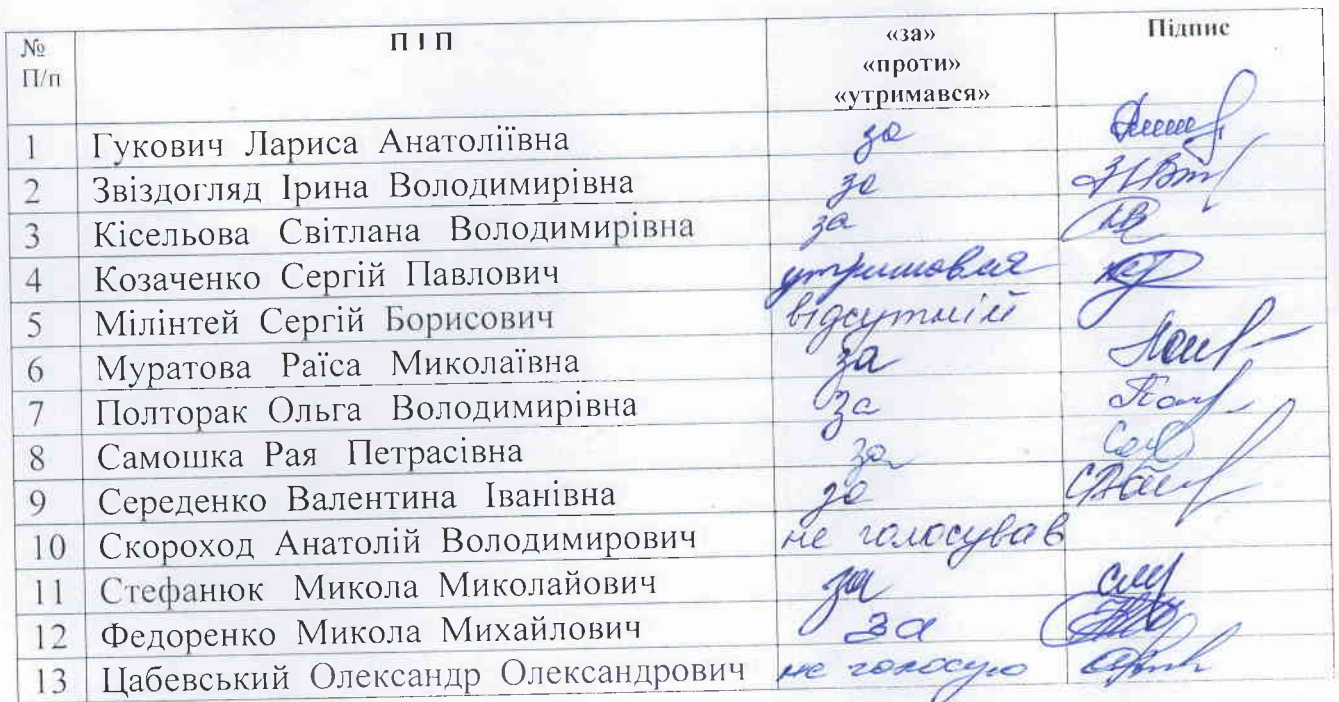 № П/п П І П «за» «проти» «утримався» Підпис
1 Гукович Лариса Анатоліївна за
2 Звіздогляд Ірина Володимирівна за
3 Кісельова Світлана Володимирівна за
4 Козаченко Сергій Павлович утримався
5 Мілінтей Сергій Борисович відсутній
6 Муратова Раїса Миколаївна за
7 Полторак Ольга Володимирівна за
8 Самошка Рая Петрасівна за
9 Середенко Валентина Іванівна за
10 Скороход Анатолій Володимирович не голосував
11 Стефанюк Микола Миколайович за
12 Федоренко Микола Михайлович за
13 Цабевський Олександр Олександрович не голосую